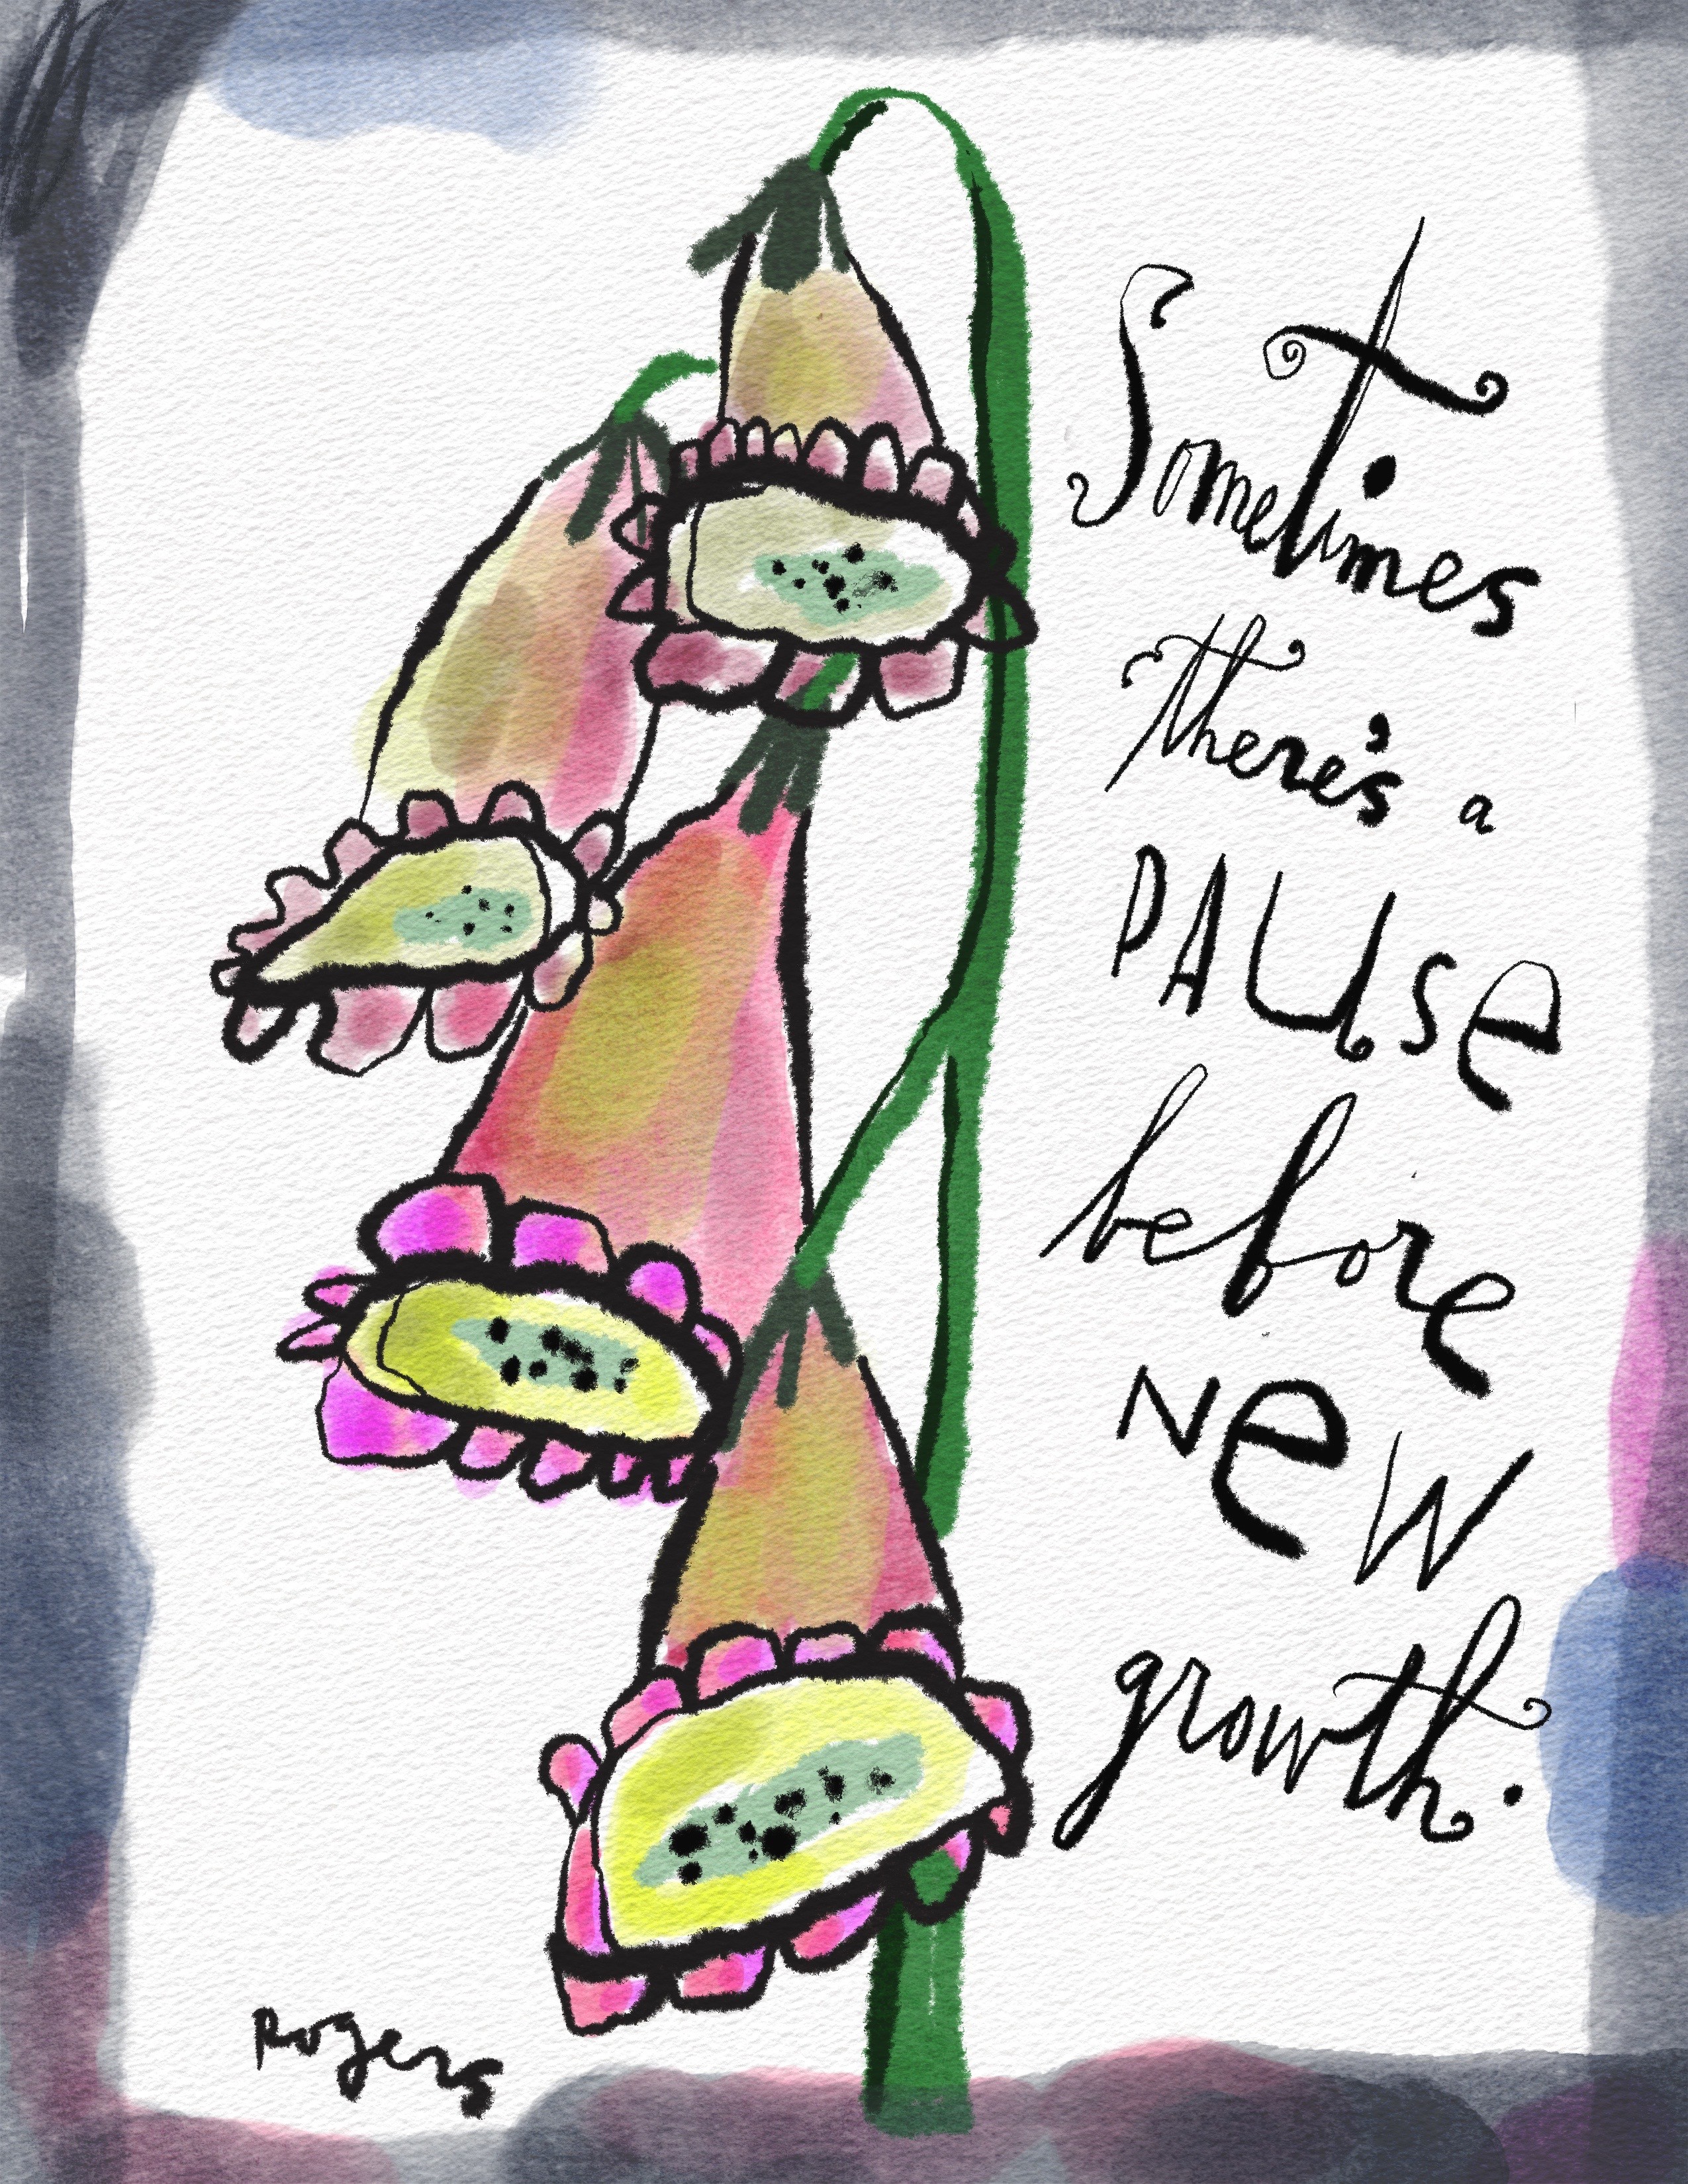 Sometimes
there's a
PAUse
before
New
growth.
Rogers